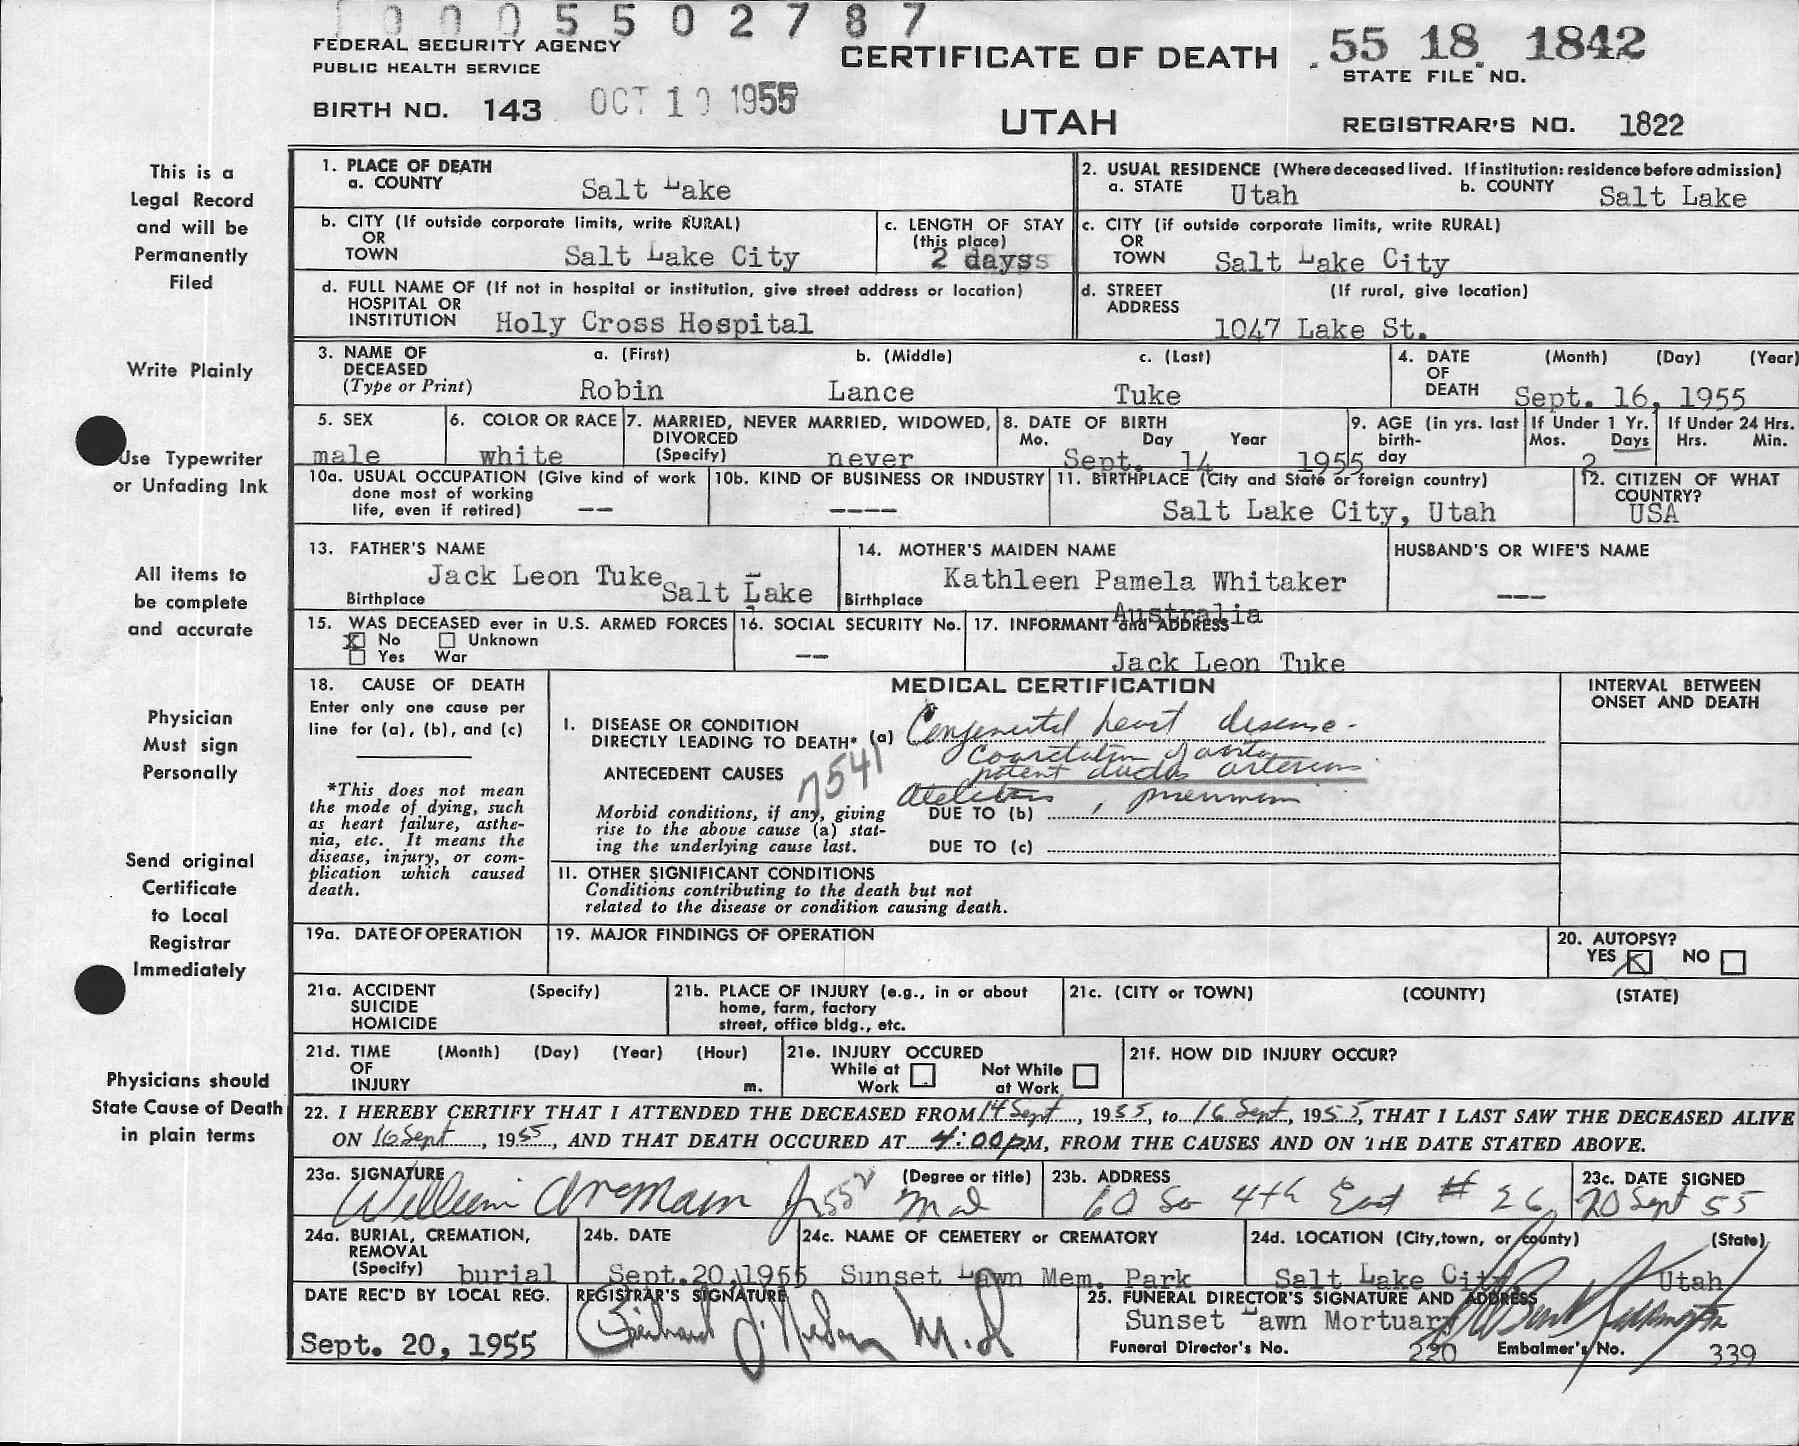 0005502787
FEDERAL SECURITY AGENCY
PUBLIC HEALTH SERVICE
CERTIFICATE OF DEATH
55 18 1842
STATE FILE NO.
BIRTH NO. 143 OCT 10 1955
UTAH
REGISTRAR'S NO. 1822
This is a
Legal Record
and will be
Permanently
Filed
Write Plainly
Use Typewriter
or Unfading Ink
All items to
be complete
and accurate
Physician
Must sign
Personally
Send original
Certificate
to Local
Registrar
Immediately
Physicians should
State Cause of Death
in plain terms
1. PLACE OF DEATH
a. COUNTY Salt Lake
2. USUAL RESIDENCE (Where deceased lived. If institution: residence before admission)
a. STATE Utah b. COUNTY Salt Lake
b. CITY (If outside corporate limits, write RURAL)
OR
TOWN Salt Lake City
c. LENGTH OF STAY
(this place)
2 dayss
c. CITY (if outside corporate limits, write RURAL)
OR
TOWN Salt Lake City
d. FULL NAME OF (If not in hospital or institution, give street address or location)
HOSPITAL OR
INSTITUTION Holy Cross Hospital
d. STREET (If rural, give location)
ADDRESS
1047 Lake St.
3. NAME OF a. (First) b. (Middle) c. (Last)
DECEASED
(Type or Print) Robin Lance Tuke
4. DATE (Month) (Day) (Year)
OF
DEATH Sept. 16, 1955
5. SEX
male
6. COLOR OR RACE
white
7. MARRIED, NEVER MARRIED, WIDOWED,
DIVORCED
(Specify) never
8. DATE OF BIRTH
Mo. Day Year
Sept. 14 1955
9. AGE (in yrs. last
birth-
day
If Under 1 Yr.
Mos. Days
2
If Under 24 Hrs.
Hrs. Min.
10a. USUAL OCCUPATION (Give kind of work
done most of working
life, even if retired) --
10b. KIND OF BUSINESS OR INDUSTRY
----
11. BIRTHPLACE (City and State or foreign country)
Salt Lake City, Utah
12. CITIZEN OF WHAT
COUNTRY?
USA
13. FATHER'S NAME
Jack Leon Tuke
Birthplace Salt Lake
14. MOTHER'S MAIDEN NAME
Kathleen Pamela Whitaker
Birthplace Australia
HUSBAND'S OR WIFE'S NAME
---
15. WAS DECEASED ever in U.S. ARMED FORCES
X No Unknown
Yes War
16. SOCIAL SECURITY No.
--
17. INFORMANT and ADDRESS
Jack Leon Tuke
18. CAUSE OF DEATH
Enter only one cause per
line for (a), (b), and (c)
*This does not mean
the mode of dying, such
as heart failure, asthe-
nia, etc. It means the
disease, injury, or com-
plication which caused
death.
MEDICAL CERTIFICATION
INTERVAL BETWEEN
ONSET AND DEATH
I. DISEASE OR CONDITION
DIRECTLY LEADING TO DEATH* (a) Congenital heart disease.
Coarctation of aorta
patent ductus arteriosus
ANTECEDENT CAUSES 7541
Morbid conditions, if any, giving
rise to the above cause (a) stat-
ing the underlying cause last.
DUE TO (b)
DUE TO (c)
II. OTHER SIGNIFICANT CONDITIONS
Conditions contributing to the death but not
related to the disease or condition causing death.
19a. DATE OF OPERATION
19. MAJOR FINDINGS OF OPERATION
20. AUTOPSY?
YES X NO
21a. ACCIDENT (Specify)
SUICIDE
HOMICIDE
21b. PLACE OF INJURY (e.g., in or about
home, farm, factory
street, office bldg., etc.
21c. (CITY or TOWN) (COUNTY) (STATE)
21d. TIME (Month) (Day) (Year) (Hour)
OF
INJURY m.
21e. INJURY OCCURED
While at Not While
Work at Work
21f. HOW DID INJURY OCCUR?
22. I HEREBY CERTIFY THAT I ATTENDED THE DECEASED FROM 14 Sept, 1955, to 16 Sept, 1955, THAT I LAST SAW THE DECEASED ALIVE
ON 16 Sept, 1955, AND THAT DEATH OCCURED AT 4:00pM, FROM THE CAUSES AND ON THE DATE STATED ABOVE.
23a. SIGNATURE (Degree or title)
William
23b. ADDRESS
60 So 4th East # 26
23c. DATE SIGNED
20 Sept 55
24a. BURIAL, CREMATION,
REMOVAL
(Specify) burial
24b. DATE
Sept.20,1955
24c. NAME OF CEMETERY OR CREMATORY
Sunset Lawn Mem. Park
24d. LOCATION (City, town, or county) (State)
Salt Lake City, Utah
DATE REC'D BY LOCAL REG.
Sept. 20, 1955
REGISTRAR'S SIGNATURE
M.D
25. FUNERAL DIRECTOR'S SIGNATURE AND ADDRESS
Sunset Lawn Mortuary
Funeral Director's No. 220 Embalmer's No. 339